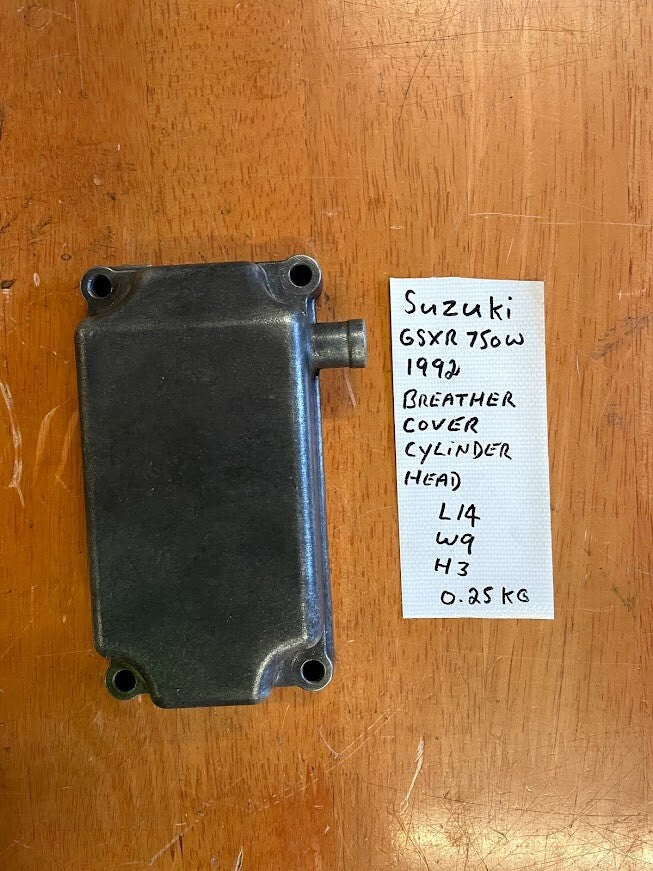 Suzuki
GSXR 750W
1992
BREATHER
COVER
CYLiNDER
HEAD
L14
W9
H3
0.25 KG